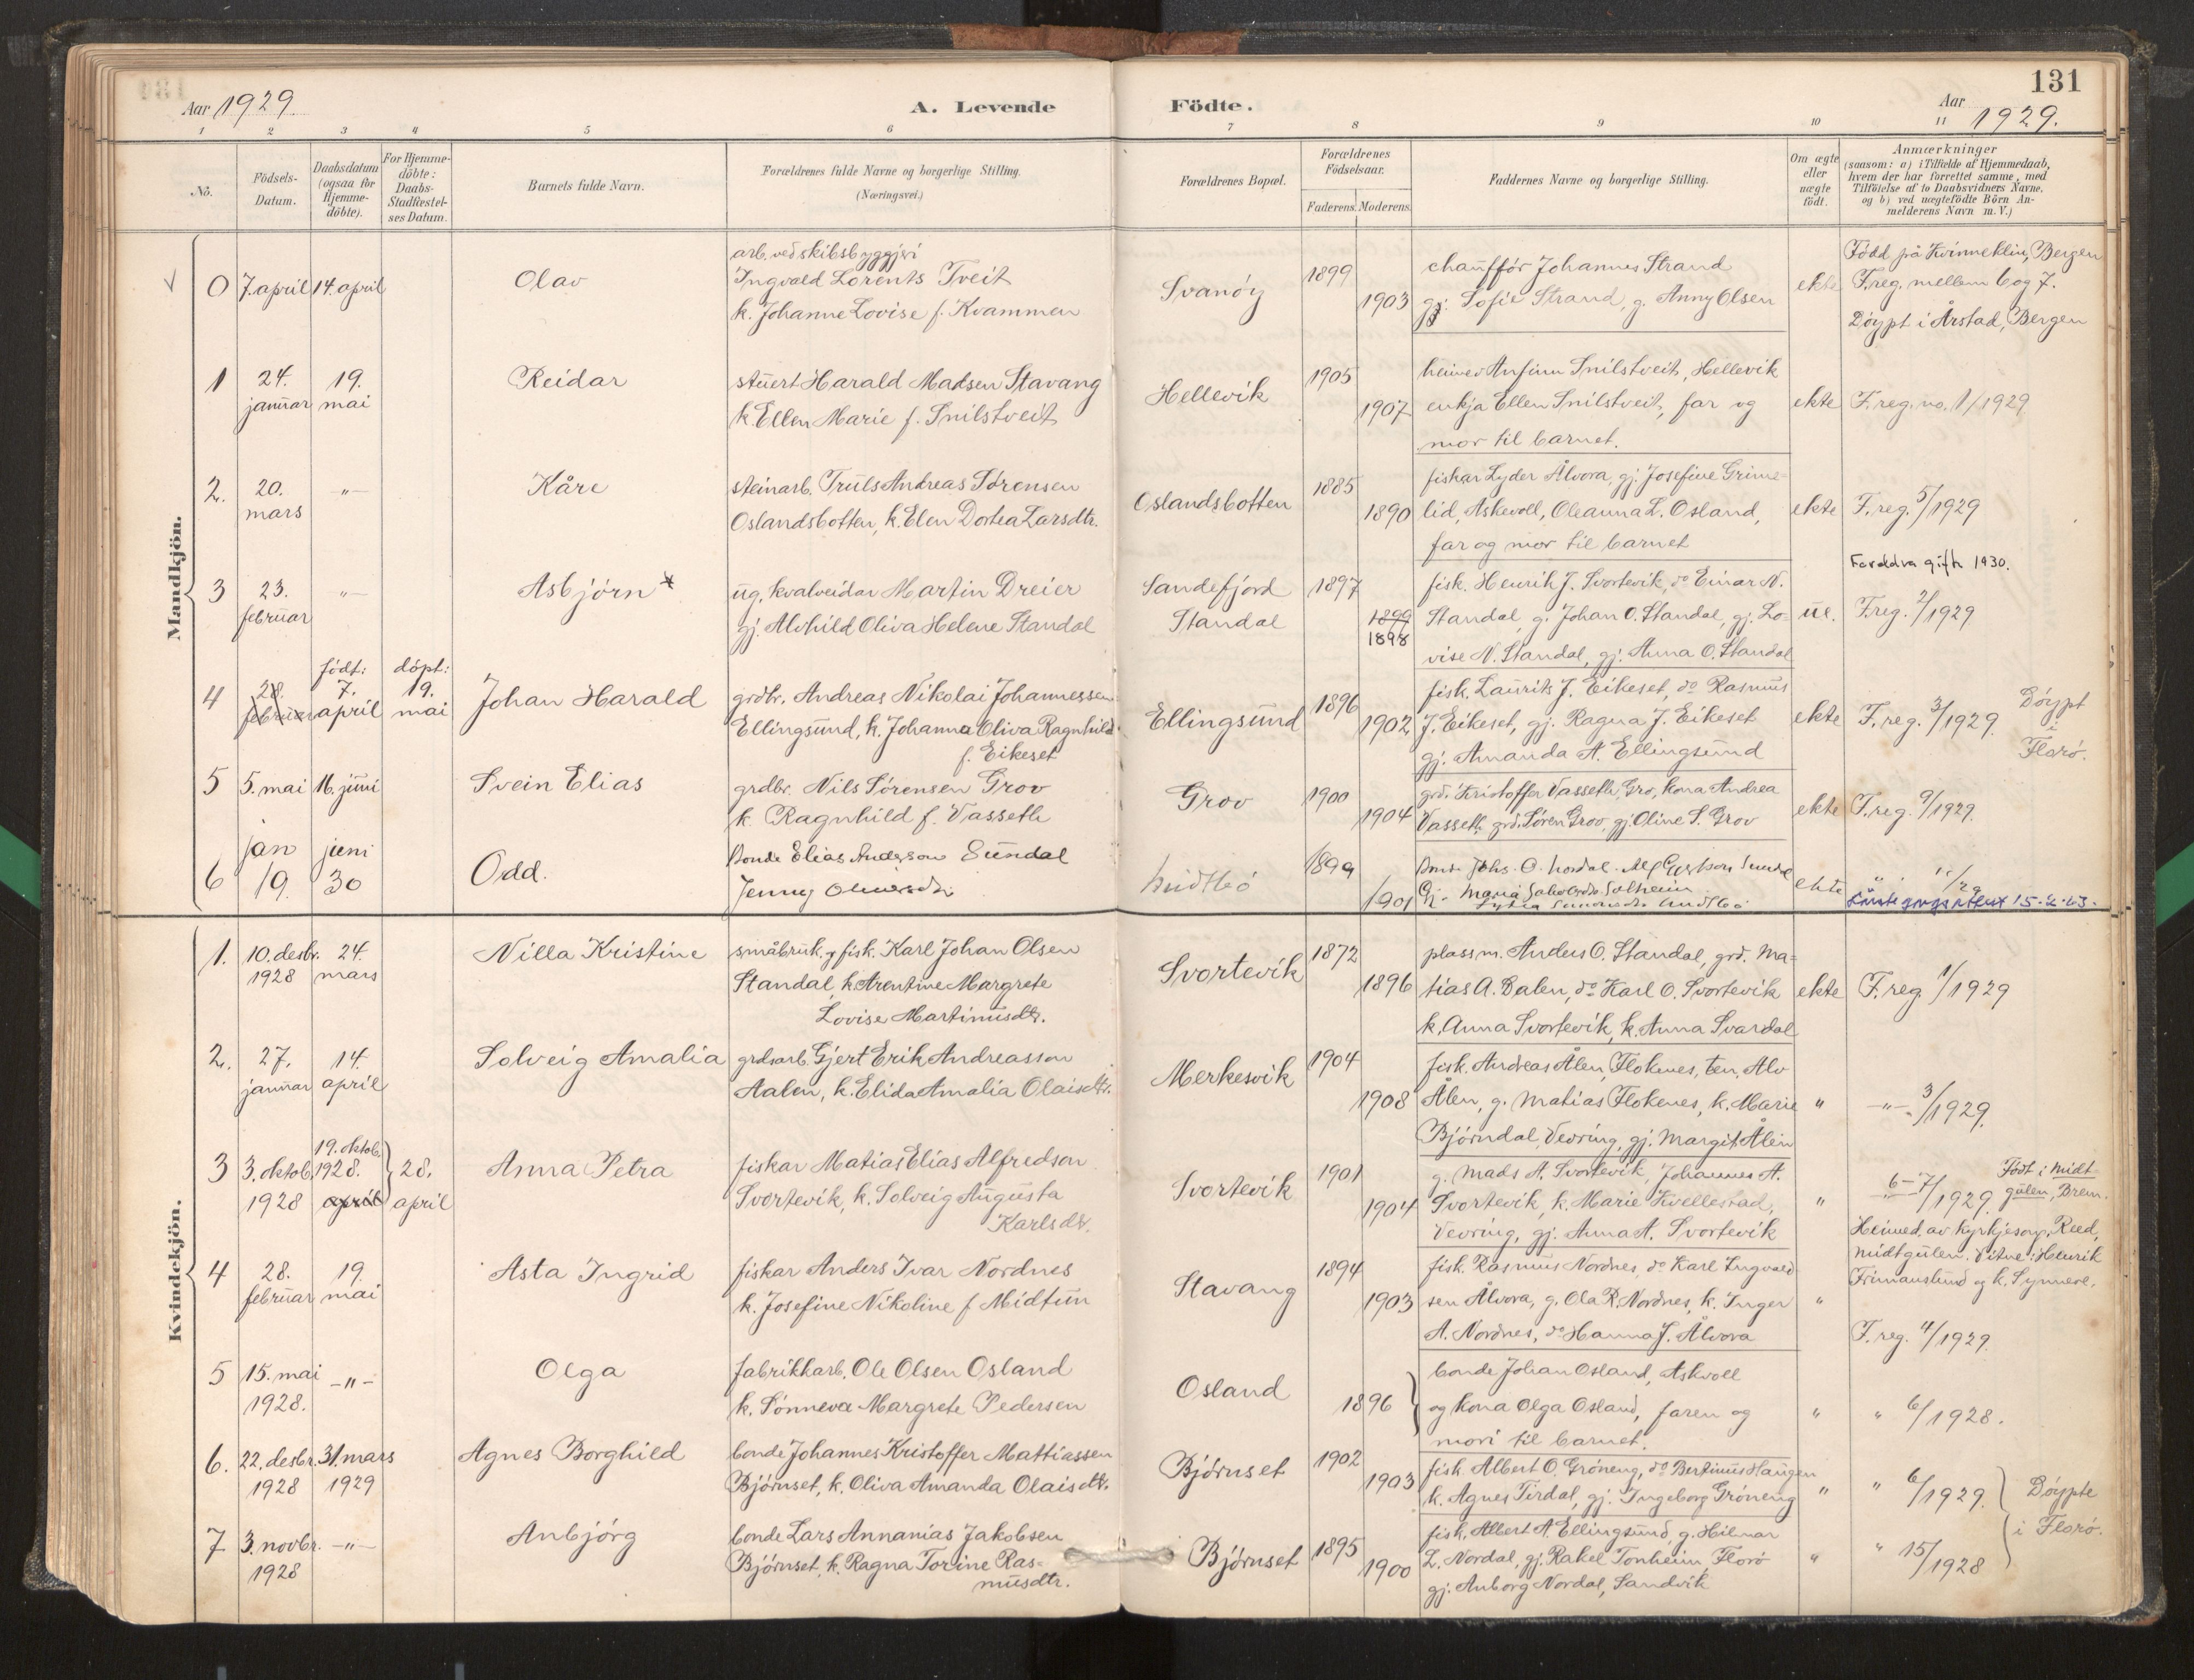 131
Aar 1929.
A. Levende Fødte.
Aar 1929.
1 2 3 4 5 6 7 8 9 10 11
No.
Födsels-Datum.
Daabsdatum (ogsaa for Hjemme-döbte).
For Hjemme-döbte: Daabs-Stadfæstel-ses Datum.
Barnets fulde Navn.
Forældrenes fulde Navne og borgerlige Stilling.
(Næringsvei.)
Forældrenes Bopæl.
Forældrenes Födselsaar.
Faderens. Moderens.
Faddernes Navne og borgerlige Stilling.
Om ægte eller uægte födt.
Anmærkninger
(saasom: a) i Tilfælde af Hjemmedaab,
hvem der har forrettet samme, med
Tilföielse af to Daabsvidners Navne,
og b) ved uægtefödte Börn An-
melderens Navn m. V.)
Mandkjön.
0 7. april 14. april
Olav
arb. ved skibsbyggjeri
Ingvald Lorents Tveit
k. Johanne Lovise f. Kvammen
Svanöy
1899
1903
chaufför Johannes Strand
gj. Sofie Strand, g. Anny Olsen
ekte
Född på Kvinneklin, Bergen
F.reg. mellem 6 og 7.
Döypt i Årstad, Bergen
1 24. januar 19. mai
Reidar
stuert Harald Madsen Stavang
k. Ellen Marie f. Snilstveit
Hellevik
1905
1907
Anfinn Snilstveit, Hellevik
enkja Ellen Snilstveit, far og
mor til barnet.
ekte
F. reg. no. 1/1929
2. 20. mars -"-
Kåre
steinarb. Truls Andreas Sørensen
Oslandsbotten, k. Elen Dortea Larsdtr.
Oslandsbotten
1885
1890
fiskar Lyder Ålvora, gj. Josefine Grime-
lid, Askevoll, Oleanna L. Osland,
far og mor til barnet
ekte
F. reg. 5/1929
3 23. februar -"-
Asbjörn
ug. kvalveidar Martin Dreier
gj. Alvhild Oliva Helene Standal
Sandefjord
Standal
1897
1899
1898
fisk. Henrik J. Svortevik, do Einar N.
Standal, g. Johan O. Standal, gj. Lo-
vise N. Standal, gj. Anna O. Standal
ue.
Foreldra gift 1930.
F.reg. 2/1929
4 28. februar født: 7. april döpt: 19. mai
Johan Harald
grdbr. Andreas Nikolai Johannessen
Ellingsund, k. Johanna Oliva Ragnhild
f. Eikeset
Ellingsund
1896
1902
fisk. Laurits J. Eikeset, do Rasmus
J. Eikeset, gj. Ragna J. Eikeset
gj. Amanda A. Ellingsund
ekte
F. reg. 3/1929
Döypt i Florö.
5 5. mai 16. juni
Svein Elias
grdbr. Nils Sörensen Grov
k. Ragnhild f. Vasseth
Grov
1900
1904
grd. Kristoffer Vasseth, Gro, kona Andrea
Vasseth, grd. Sören Grov, gj. Oline S. Grov
ekte
F. reg. 9/1929.
6 jan 19. juni 30
Odd.
Bonde Elias Anderson Sundal
Jenny
1899
1901
ekte
Kvindekjön.
1. 10. desbr. 1928 24. mars
Nilla Kristine
småbruk. og fisk. Karl Johan Olsen
Standal, k. Arentine Margrete
Lovise Martinusdtr.
Svortevik
1872
1896
plassm. Anders O. Standal, grd. Ma-
tias A. Dalen, do Karl O. Svortevik
k. Anna Svortevik, k. Anna Svardal
ekte
F. reg. 1/1929
2. 27. januar 14. april
Solveig Amalia
grdsarb. Gjert Erik Andreasson
Aalen, k. Elida Amalia Olaisdtr.
Merkesvik
1904
1908
fisk. Andreas Ålen, Flokenes, ten. Alv
Ålen, g. Matias Flokenes, k. Marie
Björndal, Vevring, gj. Margit Ålen
"
-"- 3/1929.
3 3. oktob. 1928 19. oktob. 1928. april 28. april
Anna Petra
fiskar Matias Elias Alfredson
Svortevik, k. Solveig Augusta
Karlsdtr.
Svortevik
1901
1904
g. Mads A. Svortevik, Johannes A.
Svortevik, k. Marie Kvellestad,
Vevring, gj. Anna A. Svortevik
"
6-7/1929.
Födt i Midt-
gulen, Brem.
Heimed. av kyrkjesong. Rud,
Midtgulen. Vitne: Henrik
Frimanslund og k. Synneve.
4 28. februar 19. mai
Asta Ingrid
fiskar Anders Ivar Nordnes
k. Josefine Nikoline f. Midtun
Stavang
1894
1903
fisk. Rasmus Nordnes, do Karl Ingvald-
sen Ålvora, g. Ola R. Nordnes, k. Inger
A. Nordnes, do Hanna J. Ålvora
"
F. reg. 4/1929.
5 15. mai 1928. -"-
Olga
fabrikkarb. Ole Olsen Osland
k. Sönneva Margrete Pedersen
Osland
1896
bonde Johan Osland, Askvoll
og kona Olga Osland, faren og
mori til barnet.
"
" 6/1928.
6. 22. desbr. 1928 31. mars 1929
Agnes Borghild
bonde Johannes Kristoffer Mattiassen
Björnset, k. Oliva Amanda Olaisdtr.
Björnset
1902
1903
fisk. Albert O. Gröneng, do Bertinus Haugen
k. Agnes Tirdal, gj. Ingeborg Gröneng
"
" 6/1929.
Döypte
i Florö.
7 3. novbr. 1928 -"-
Anbjörg
bonde Lars Annanias Jakobsen
Björnset, k. Ragna Torine Ras-
musdtr.
Björnset
1895
1900
fisk. Albert A. Ellingsund g. Hilmar
L. Nordal, gj. Rakel Tonheim Florö
gj. Anborg Nordal, Sandvik
"
" 15/1928